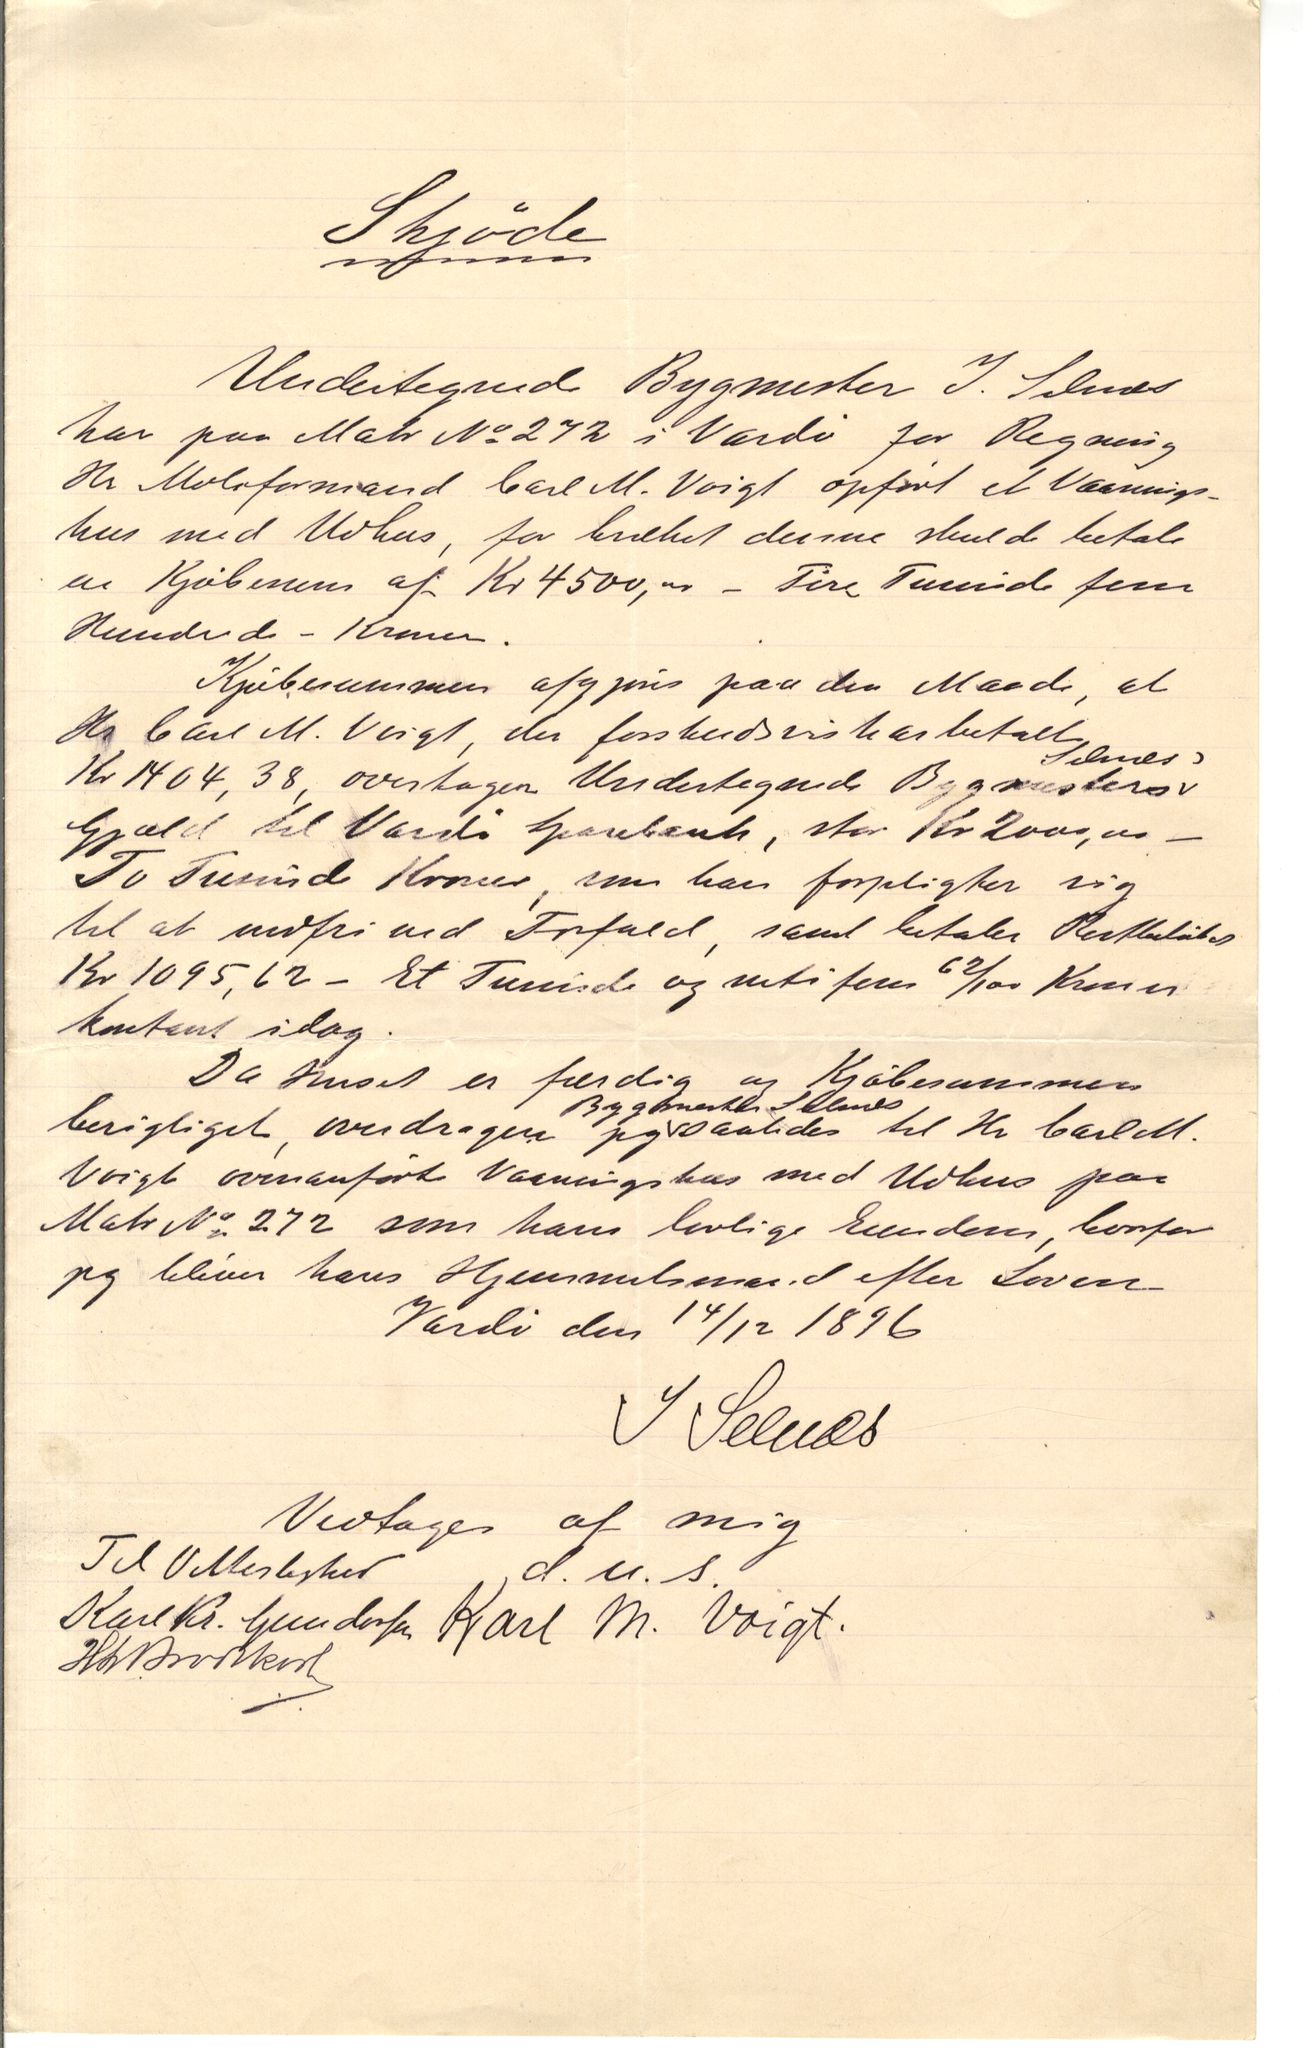 Skjöde
Undertegnede Bygmester J. Selnæs
har paa Matr No 272 i Vardö for Regning
Hr Moloformand Carl M. Voigt opført et Vaanings-
hus med Udhus, for hvilket denne skulde betale
en Kjøbesum af Kr 4500,00 – Fire Tusinde fem
Hundrede – Kroner.
Kjøbesummen afgjøres paa den Maade, at
Hr Carl M. Voigt, der forskudsvis har betalt
Selnæs's
Kr 1404,38, overtager Undertegnede Bygmesters
Gjæld til Vardö Sparebank, stor Kr 2000,00 –
To Tusinde Kroner, som han forpligter sig
til at indfri ved Forfald, samt betaler Restbeløbet
Kr 1095,62 – Et Tusinde og nitifem 62/100 Kroner
kontant idag.
Da Huset er færdig og Kjøbesummen
Bygmester Selnæs
berigtiget, overdrager jeg saaledes til Hr Carl M.
Voigt ovenanførte Vaaningshus med Udhus paa
Matr No 272 som hans lovlige Eiendom, hvorfor
jeg bliver hans Hjemmelsmand efter Loven –
Vardö den 14/12 1896
J Selnæs
Vedtages af mig
Til Vitterlighed d. u. s.
Karl Kr. Gundersen Karl M. Voigt.
Brodtkorb